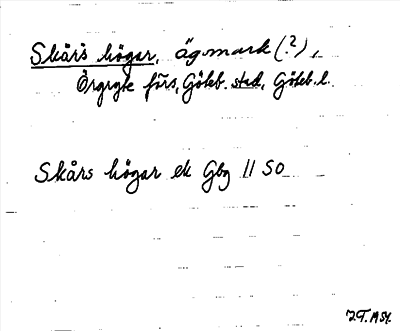 Skårs högar, ägomark (?),
Örgryte förs, Göteb. stad, Göteb. l.
Skårs högar ek Gbg 11 SO